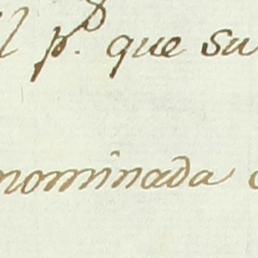 pr. que su
nominada